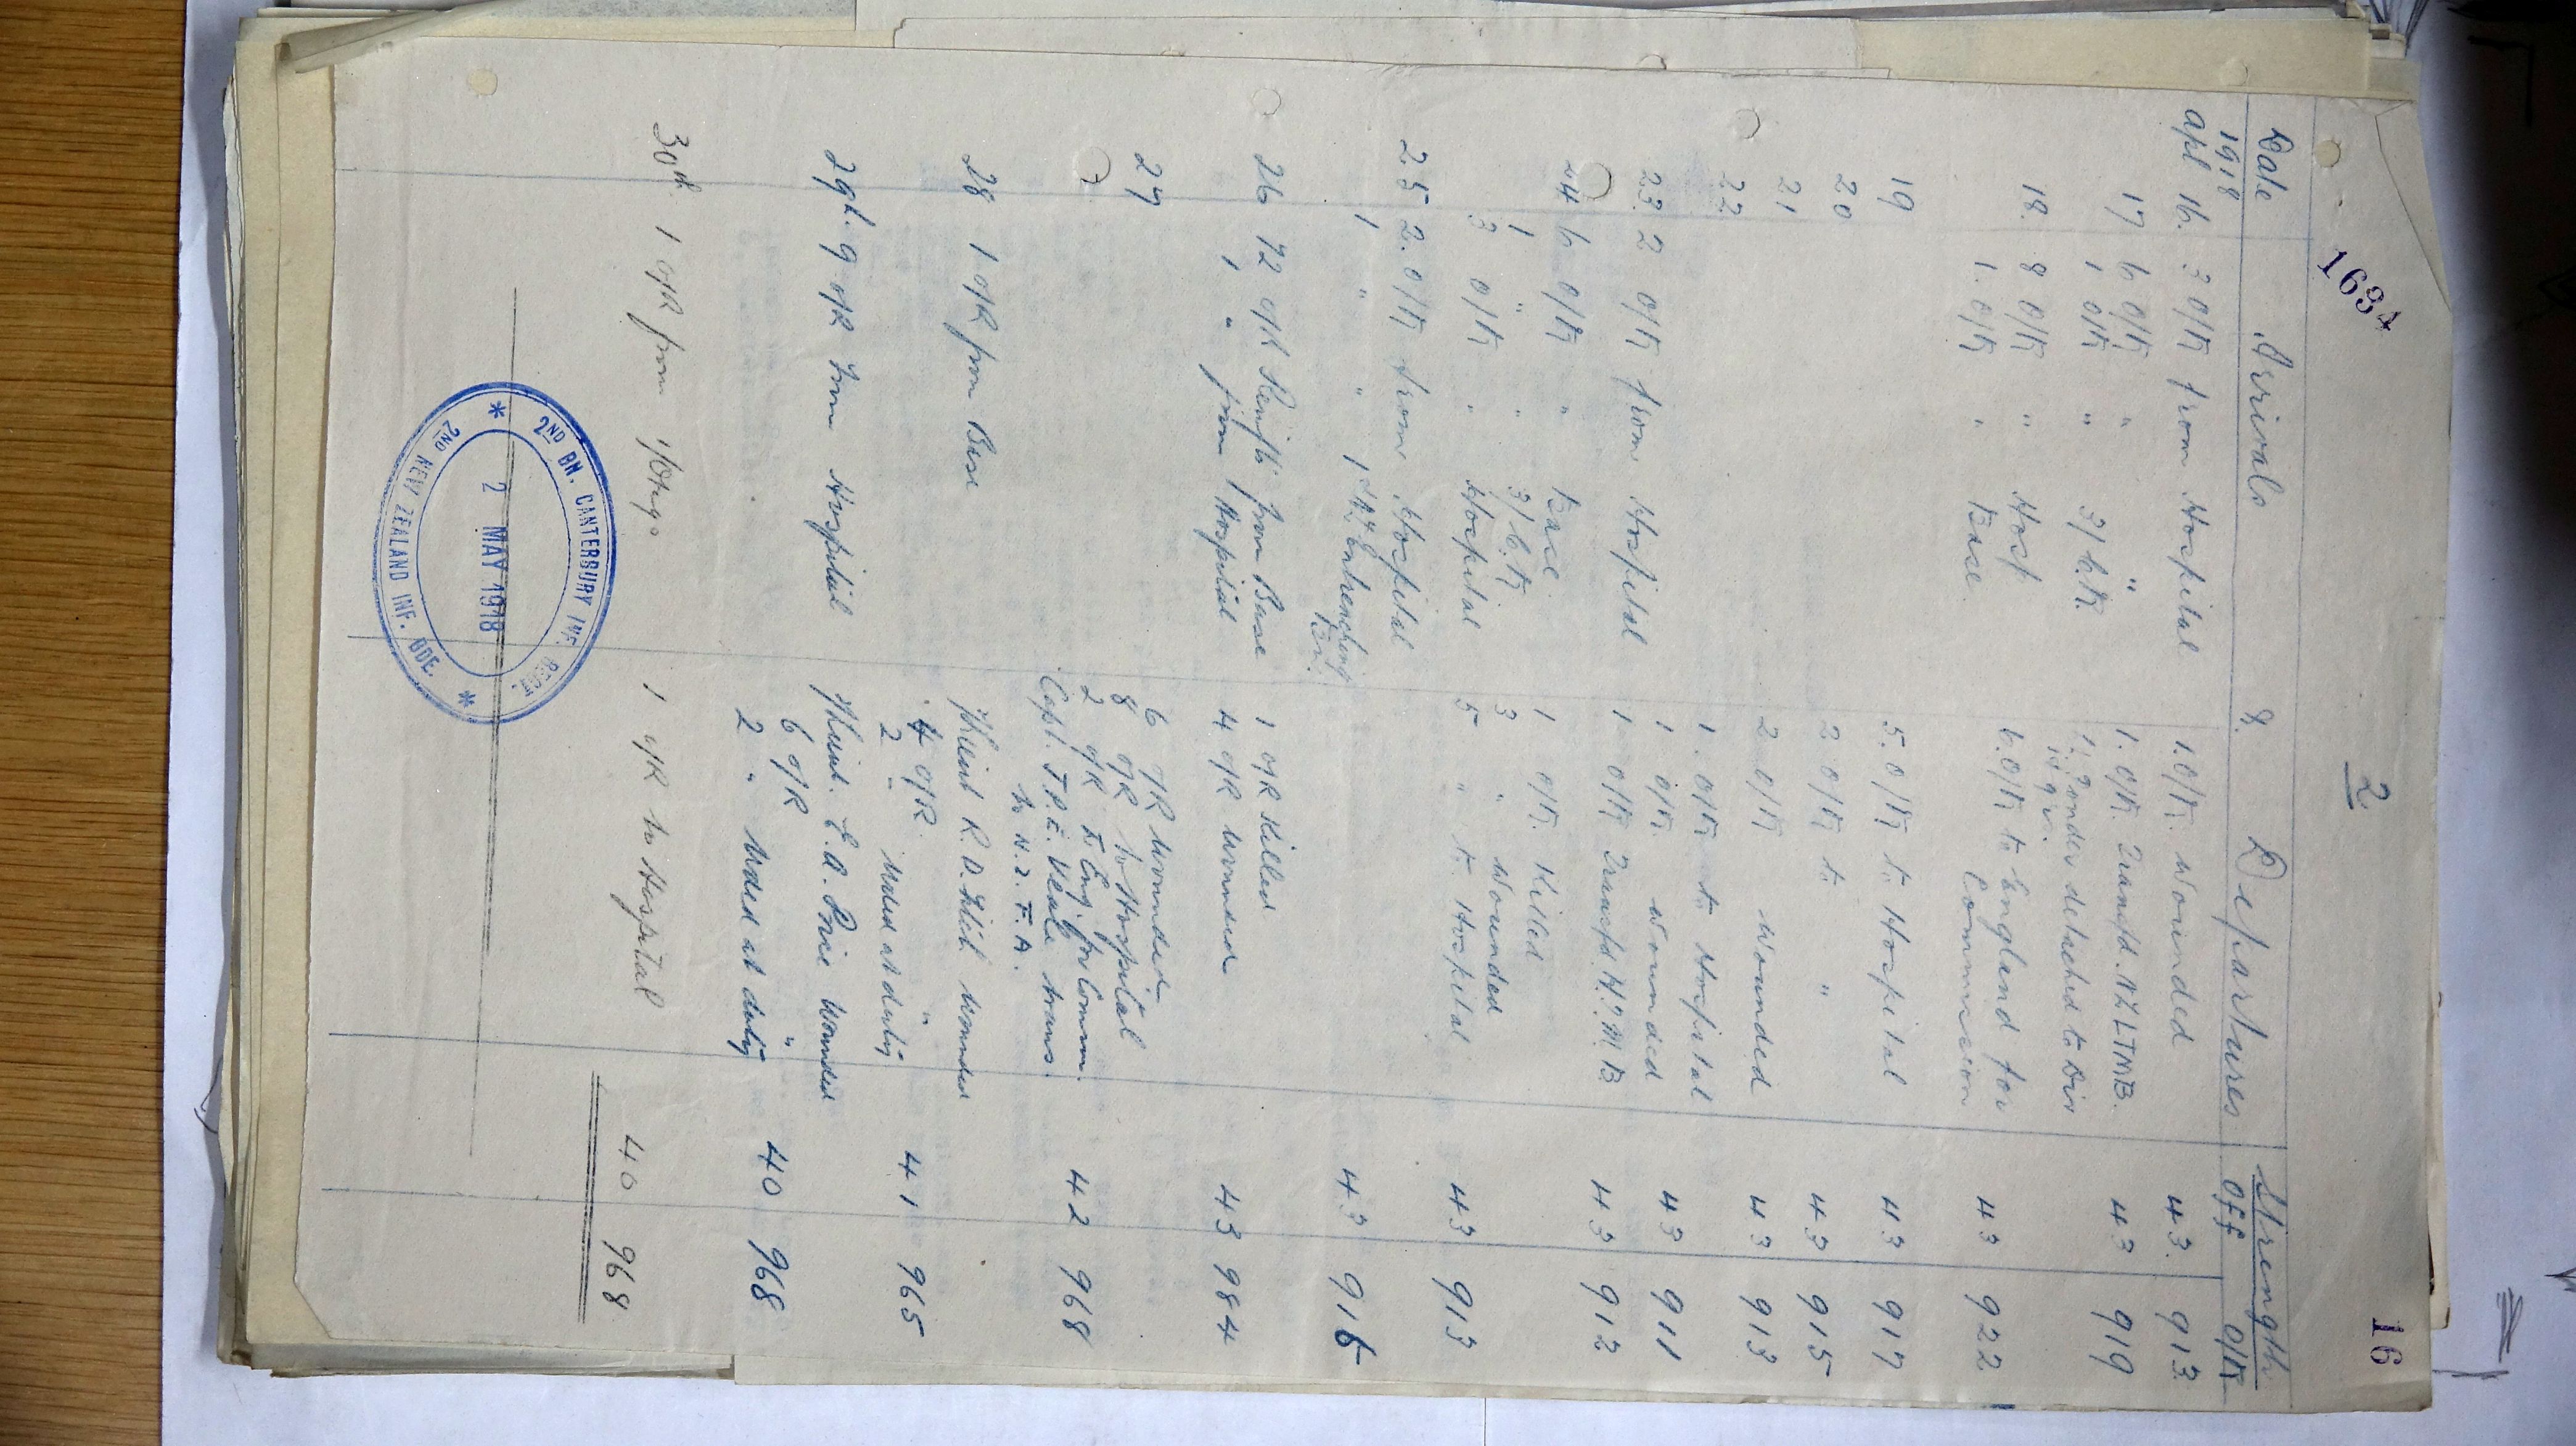 1634
2
16
Date Arrivals & Departures Strength
1918 Off O/R
Apl 16. 3 O/R from Hospital 1. O/R. Wounded 43. 913
17 6 O/R " " 1. O/R. Transfd. NZLTMB. 43 919
1 O/R " 3/C.R. 1. detached to Div
H.Q.
18. 8 O/R " Hosp 6. O/R to England for 43 922
1. O/R " Base Commission
19 5. O/R to Hospital 43 917
20 2 O/R to " 43 915
21 2 O/R Wounded 43 913
22 1. O/R to Hospital
1 O/R. Wounded 43 911
23 2 O/R from Hospital 1 O/R Transfd. M.B 43 912
24 6 O/R " Base 1 O/R. Killed
1 " " 3/C.R 3 " Wounded
3 O/R " Hospital 5 " to Hospital 43 913
25 2. O/R from Hospital
1 " " 1 NZ Entrenching 43 916
Bn.
26 72 O/R Reinfts from Base 1 O/R Killed
1 " from Hospital 4 O/R wounded 43 984
27 6 O/R wounded
8 O/R to Hospital
2 O/R to Eng. for Comm. 42 968
Capt. trans.
to N.Z.F.A.
28 1 O/R from Base R.D. wounded
4 O/R. " 41 965
2 " Wded at duty
29th. 9 O/R from Hospital E.A. Price wounded
6 O/R " 40 968
2 " Wded at duty
30th. 1 O/R from 1/Otago 1 O/R to Hospital 40 968
2ND BN. CANTERBURY INF. REGT.
2 MAY 1918
2ND NEW ZEALAND INF. BDE.